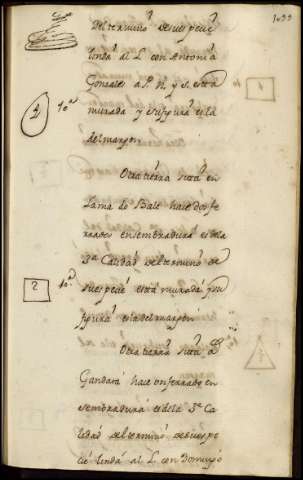 1033
del termino de su especie
linda al L. con Antonia
Gonzales a P. N. y S. esta
murada y su figura es la
del margen.
Otra tierra sita en
Lama do Bale hace dos fe
rrados en sembradura es de la
3ª Calidad del termino de
su especie está murada y su
figura es la del margen
Otra tierra sita
Gandara hace un ferrado en
sembradura es de la 3ª Ca
lidad del termino de su espe
cie linda al L. con Domingo